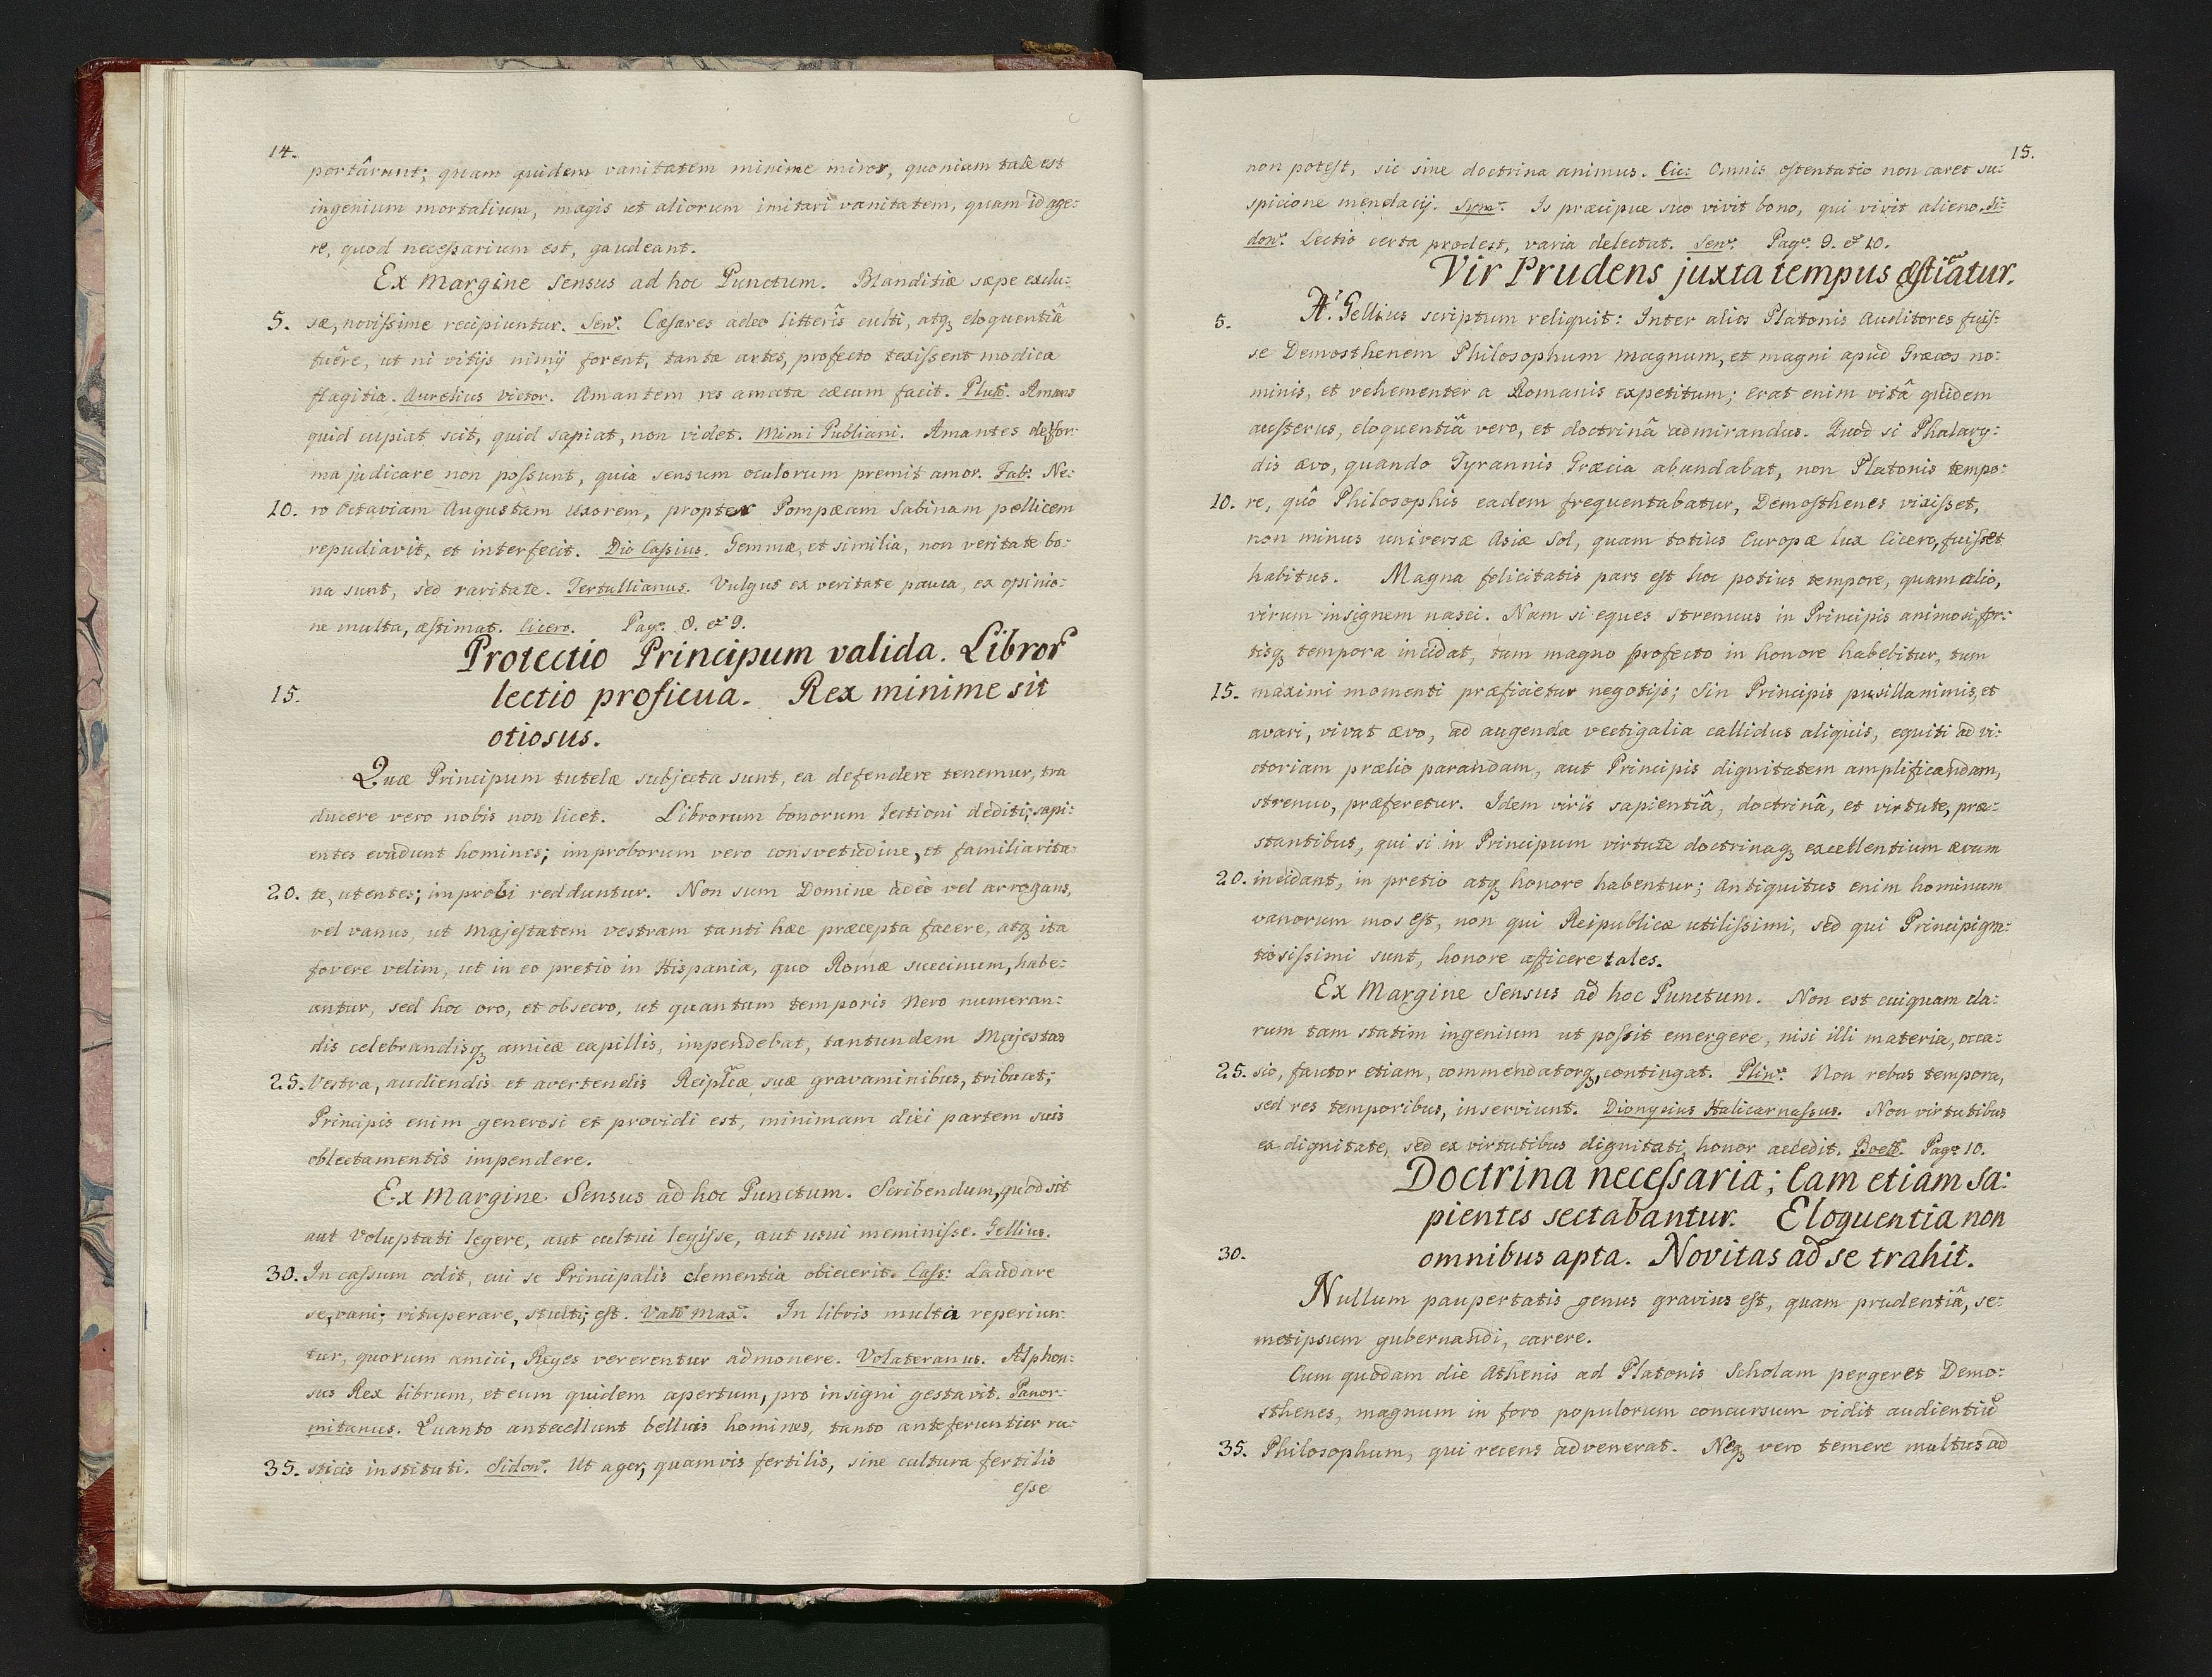 14.
portârunt; quam quidem vanitatem minime miror, quoniam tale est
ingenium mortalium, magis ut aliorum imitari vanitatem, quam id age:
re, quod necessarium est, gaudeant.
Ex Margine Sensus ad hoc Punctum. Blanditiæ sæpe exclu:
5. sæ, novissime recipiuntur. Senᵃ. Cæsares adeo litterîs culti, atq; eloquentiâ
fuêre, ut ni vitijs nimij forent, tantæ artes, profecto texissent modica
flagitia. Aurelius victor. Amantem res amata cæcum facit. Plutᵃ. Amans
quid cupiat scit, quid sapiat, non videt. Mimi Publiani. Amantes defor:
ma judicare non possunt, quia sensum oculorum premit amor. Fab: Ne:
10. ro Octaviam Augustam uxorem, propter Pompæam Sabinam pellicem
repudiavit, et interfecit. Dio Cassius. Gemmæ, et similia, non veritate bo:
na sunt, sed raritate. Tertullianus. Vulgus ex veritate pauca, ex opinio:
ne multa, æstimat. Cicero. Pagᵃ. 8. et 9.
Protectio Principum valida. Libror
15. lectio proficua. Rex minime sit
otiosus.
Quæ Principum tutelæ subjecta sunt, ea defendere tenemur, tra
ducere vero nobis non licet. Librorum bonorum lectioni dediti; sapi:
entes evadunt homines; improborum vero consvetudine, et familiarita:
20. te, utentes; improbi redduntur. Non sum Domine adeò vel arrogans,
vel vanus, ut Majestatem vestram tanti hæc præcepta facere, atq; ita
fovere velim, ut in eo pretio in Hispania, quo Romæ succinum, habe:
antur, sed hoc oro, et obsecro, ut quantum temporis Nero numeran:
dis celebrandisq; amicæ capillis, impendebat, tantundem Majestas
25. Vestra, audiendis et avertendis Reiplcæ suæ gravaminibus, tribuat;
Principis enim generosi et providi est, minimam diei partem suis
oblectamentis impendere.
Ex Margine Sensus ad hoc Punctum. Scribendum, quod sit
aut Voluptati legere, aut cultui legisse, aut usui meminisse. Gellius.
30. In cassum odit, cui se Principalis clementia obiecerit. Cass: Laudare
se, vani; vituperare, stulti; est. Valᵉ Maxᵉ. In libris multa reperiun:
tur, quorum amici, Reges vererentur admonere. Volateranus. Alphon:
sus Rex librum, et eum quidem apertum, pro insigni gestavit. Panor:
mitanus. Quanto antecellunt belluis homines, tanto anteferuntur ru:
35. sticis instituti. Sidonᵃ. Ut ager, quamvis fertilis, sine cultura fertilis
esse
15.
non potest, sic sine doctrina animus. Cic: Omnis ostentatio non caret su:
spicione mendacij. Symᵃ. Is præcipue suo vivit bono, qui vivit alieno. Si:
donᵃ. Lectio certa prodest, varia delectat. Senᵃ. Pagᵃ. 9. et 10.
Vir Prudens juxta tempus æstiatur.
5. A: Gellius scriptum reliquit: Inter alios Platonis Auditores fuis:
se Demosthenem Philosophum magnum, et magni apud Græcos no:
minis, et vehementer a Romanis expetitum; erat enim vitâ quidem
austerus, eloquentiâ vero, et doctrinâ admirandus. Quod si Phalary:
dis ævo, quando Tyrannis Græcia abundabat, non Platonis tempo:
10. re, quô Philosophis eadem frequentabatur, Demosthenes vixisset,
non minus universæ Asiæ Sol, quam totius Europæ lux Cicero, fuisset
habitus. Magna felicitatis pars est hoc potius tempore, quam alio,
virum insignem nasci. Nam si eques strenuus in Principis animosi, for:
tisq; tempora incidat, tum magno profecto in honore habebitur, tum
15. maximi momenti præficietur negotijs; Sin Principis pusillanimis, et
avari, vivat ævo, ad augenda vectigalia callidus aliquis, equiti ad vi:
ctoriam prælio parandam, aut Principis dignitatem amplificandam,
strenuo, præferetur. Idem viris sapientiâ, doctrinâ, et virtute, præ:
stantibus, qui si in Principum virtute doctrinaq; excellentium ævum
20. incidant, in pretio atq; honore habentur; Antiquitus enim hominum
vanorum mos est, non qui Reipublicæ utilissimi, sed qui Principi gra:
tiosissimi sunt, honore afficere tales.
Ex Margine Sensus ad hoc Punctum. Non est cuiquam cla:
rum tam statim ingenium ut possit emergere, nisi illi materia, occa:
25. sio, fautor etiam, commendatorq; contingat. Plinᵃ. Non rebus tempora,
sed res temporibus, inserviunt. Dionysius Halicarnassus. Non virtutibus
ex dignitate, sed ex virtutibus dignitati, honor accedit. Boetᵃ. Pagᵃ 10.
Doctrina necessaria; Eam etiam sa:
pientes sectabantur. Eloquentia non
30. omnibus apta. Novitas ad se trahit.
Nullum paupertatis genus gravius est, quam prudentiâ, se:
metipsum gubernandi, carere.
Cum quodam die Athenis ad Platonis Scholam pergeret Demo:
sthenes, magnum in foro populorum concursum vidit audientiũ
35. Philosophum, qui recens advenerat. Neq; vero temere multus ad